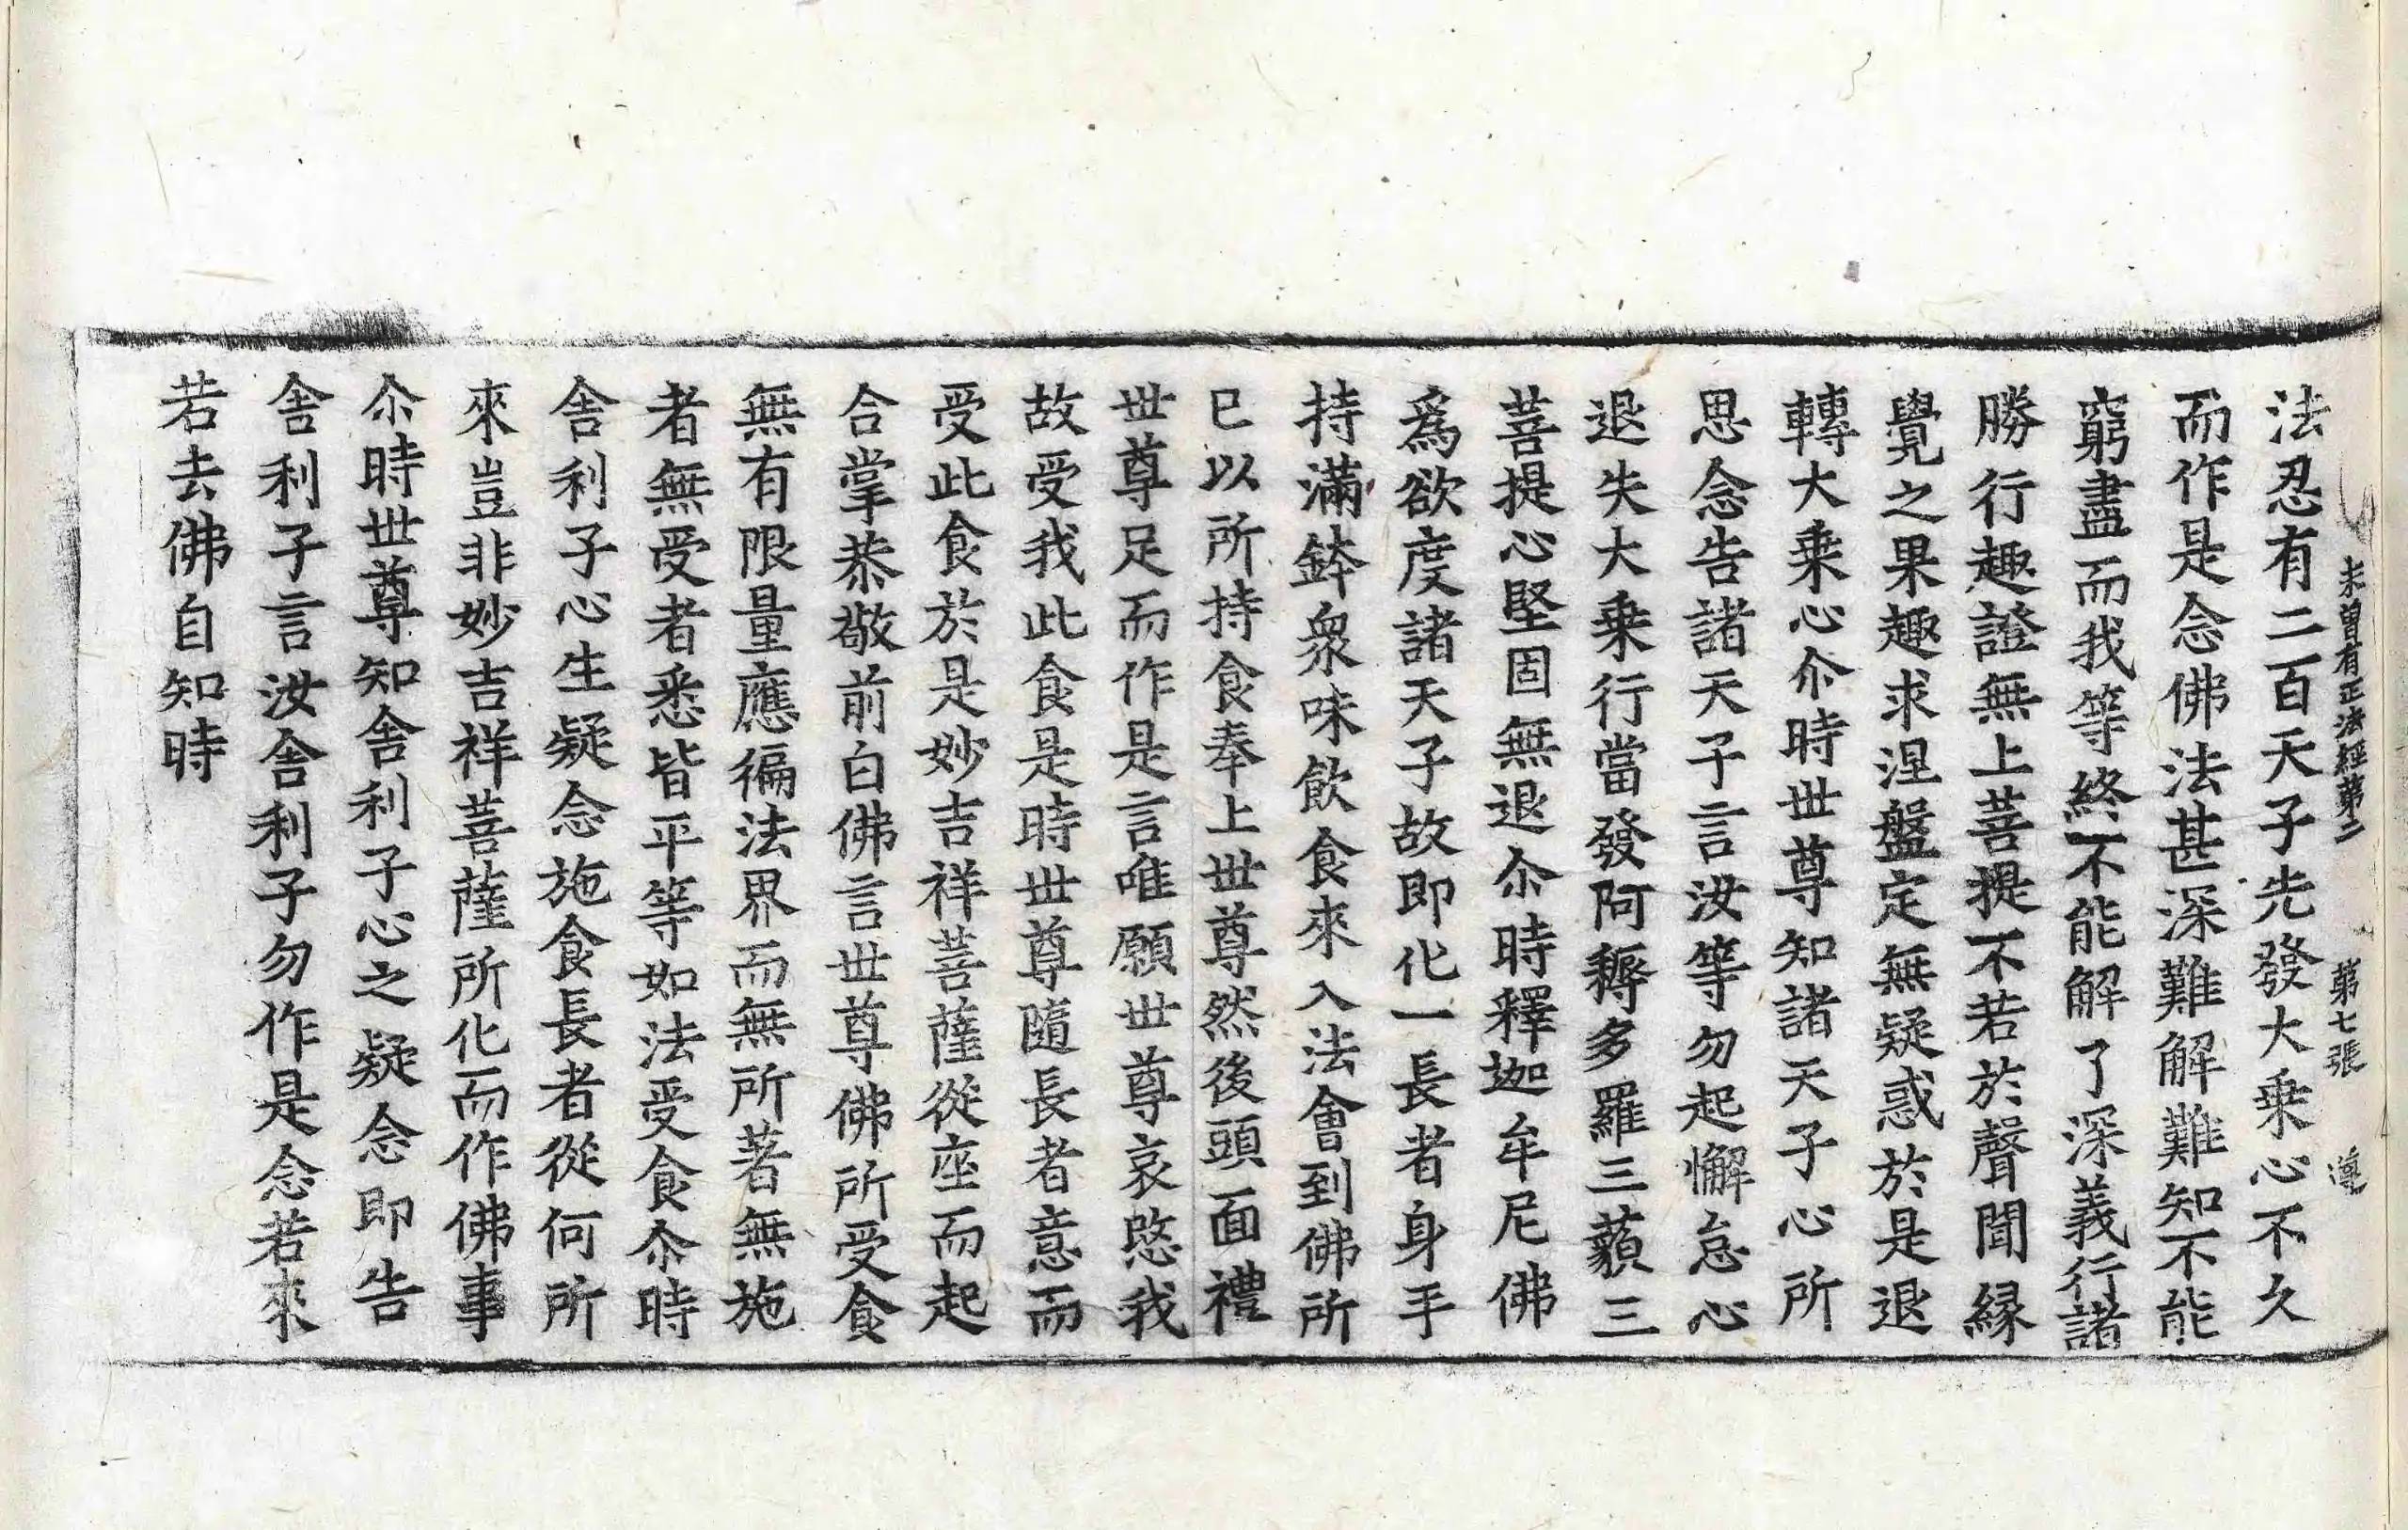 未曾有正法經第二 第七張 遵
法忍有二百天子先發大乗心不久
而作是念佛法甚深難解難知不能
窮盡而我等終不能解了深義行諸
勝行趣證無上菩提不若於聲聞縁
覺之果趣求涅盤定無疑惑於是退
轉大乗心尒時世尊知諸天子心所
思念告諸天子言汝等勿起懈怠心
退失大乗行當發阿耨多羅三藐三
菩提心堅固無退尒時釋迦牟尼佛
爲欲度諸天子故即化一長者身手
持滿鉢衆味飲食來入法會到佛所
已以所持食奉上世尊然後頭面禮
世尊足而作是言唯願世尊哀愍我
故受我此食是時世尊隨長者意而
受此食於是妙吉祥菩薩從座而起
合掌恭敬前白佛言世尊佛所受食
無有限量應徧法界而無所著無施
者無受者悉皆平等如法受食尒時
舍利子心生疑念施食長者從何所
來豈非妙吉祥菩薩所化而作佛事
尒時世尊知舍利子心之疑念即告
舍利子言汝舍利子勿作是念若來
若去佛自知時